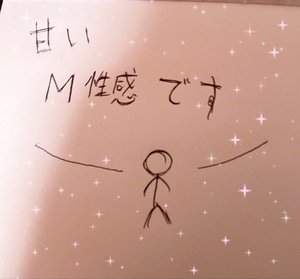 甘い
M性感です